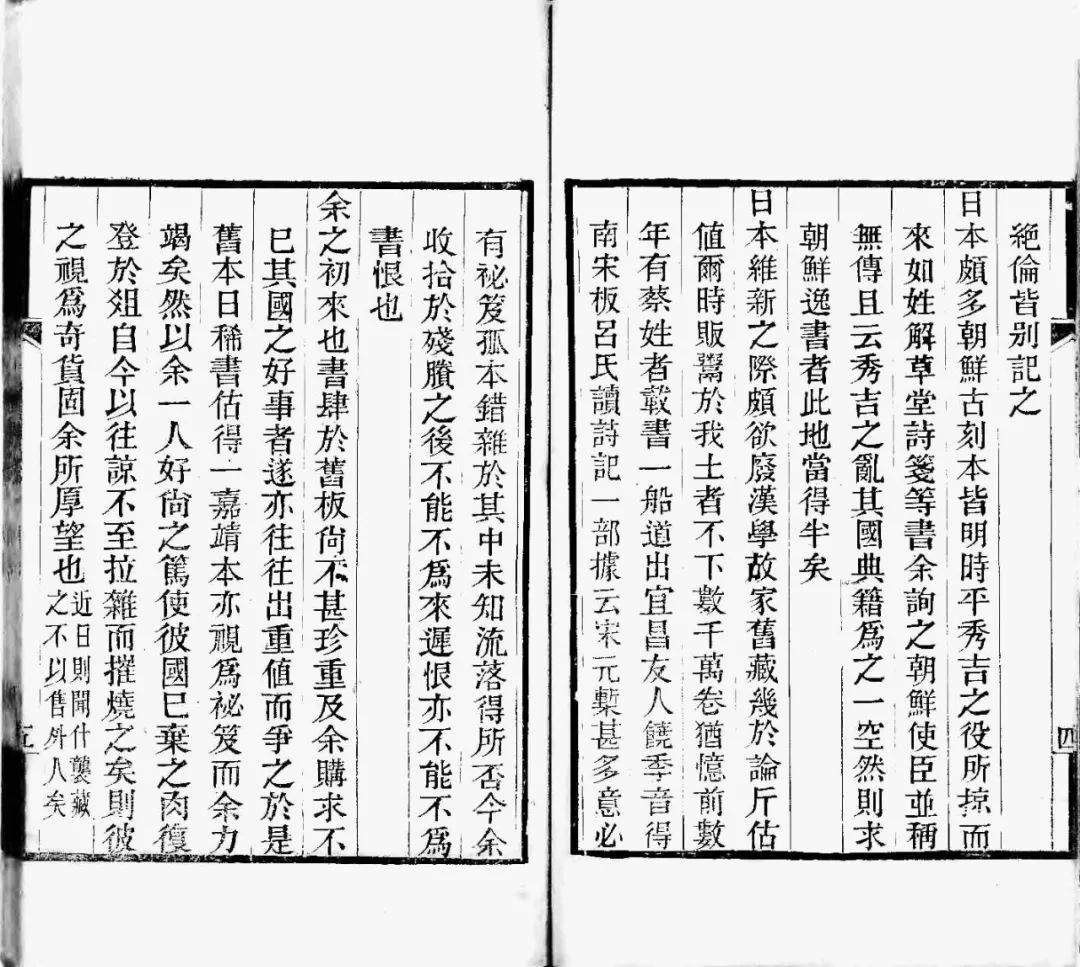 絶倫皆别記之
日本頗多朝鮮古刻本皆明時平秀吉之役所掠而
來如姓解草堂詩箋等書余詢之朝鮮使臣並稱
無傳且云秀吉之亂其國典籍爲之一空然則求
朝鮮逸書者此地當得半矣
日本維新之際頗欲廢漢學故家舊藏幾於論斤估
値爾時販鬻於我土者不下數千萬卷猶憶前數
年有蔡姓者載書一船道出宜昌友人饒季音得
南宋板呂氏讀詩記一部據云宋元槧甚多意必
四
有祕笈孤本錯雜於其中未知流落得所否今余
收拾於殘賸之後不能不爲來遲恨亦不能不爲
書恨也
余之初來也書肆於舊板尙不甚珍重及余購求不
已其國之好事者遂亦往往出重値而爭之於是
舊本日稀書估得一嘉靖本亦視爲祕笈而余力
竭矣然以余一人好尙之篤使彼國已棄之肉復
登於俎自今以往諒不至拉雜而摧燒之矣則彼
之視爲奇貨固余所厚望也近日則聞什襲藏
之不以售外人矣
五